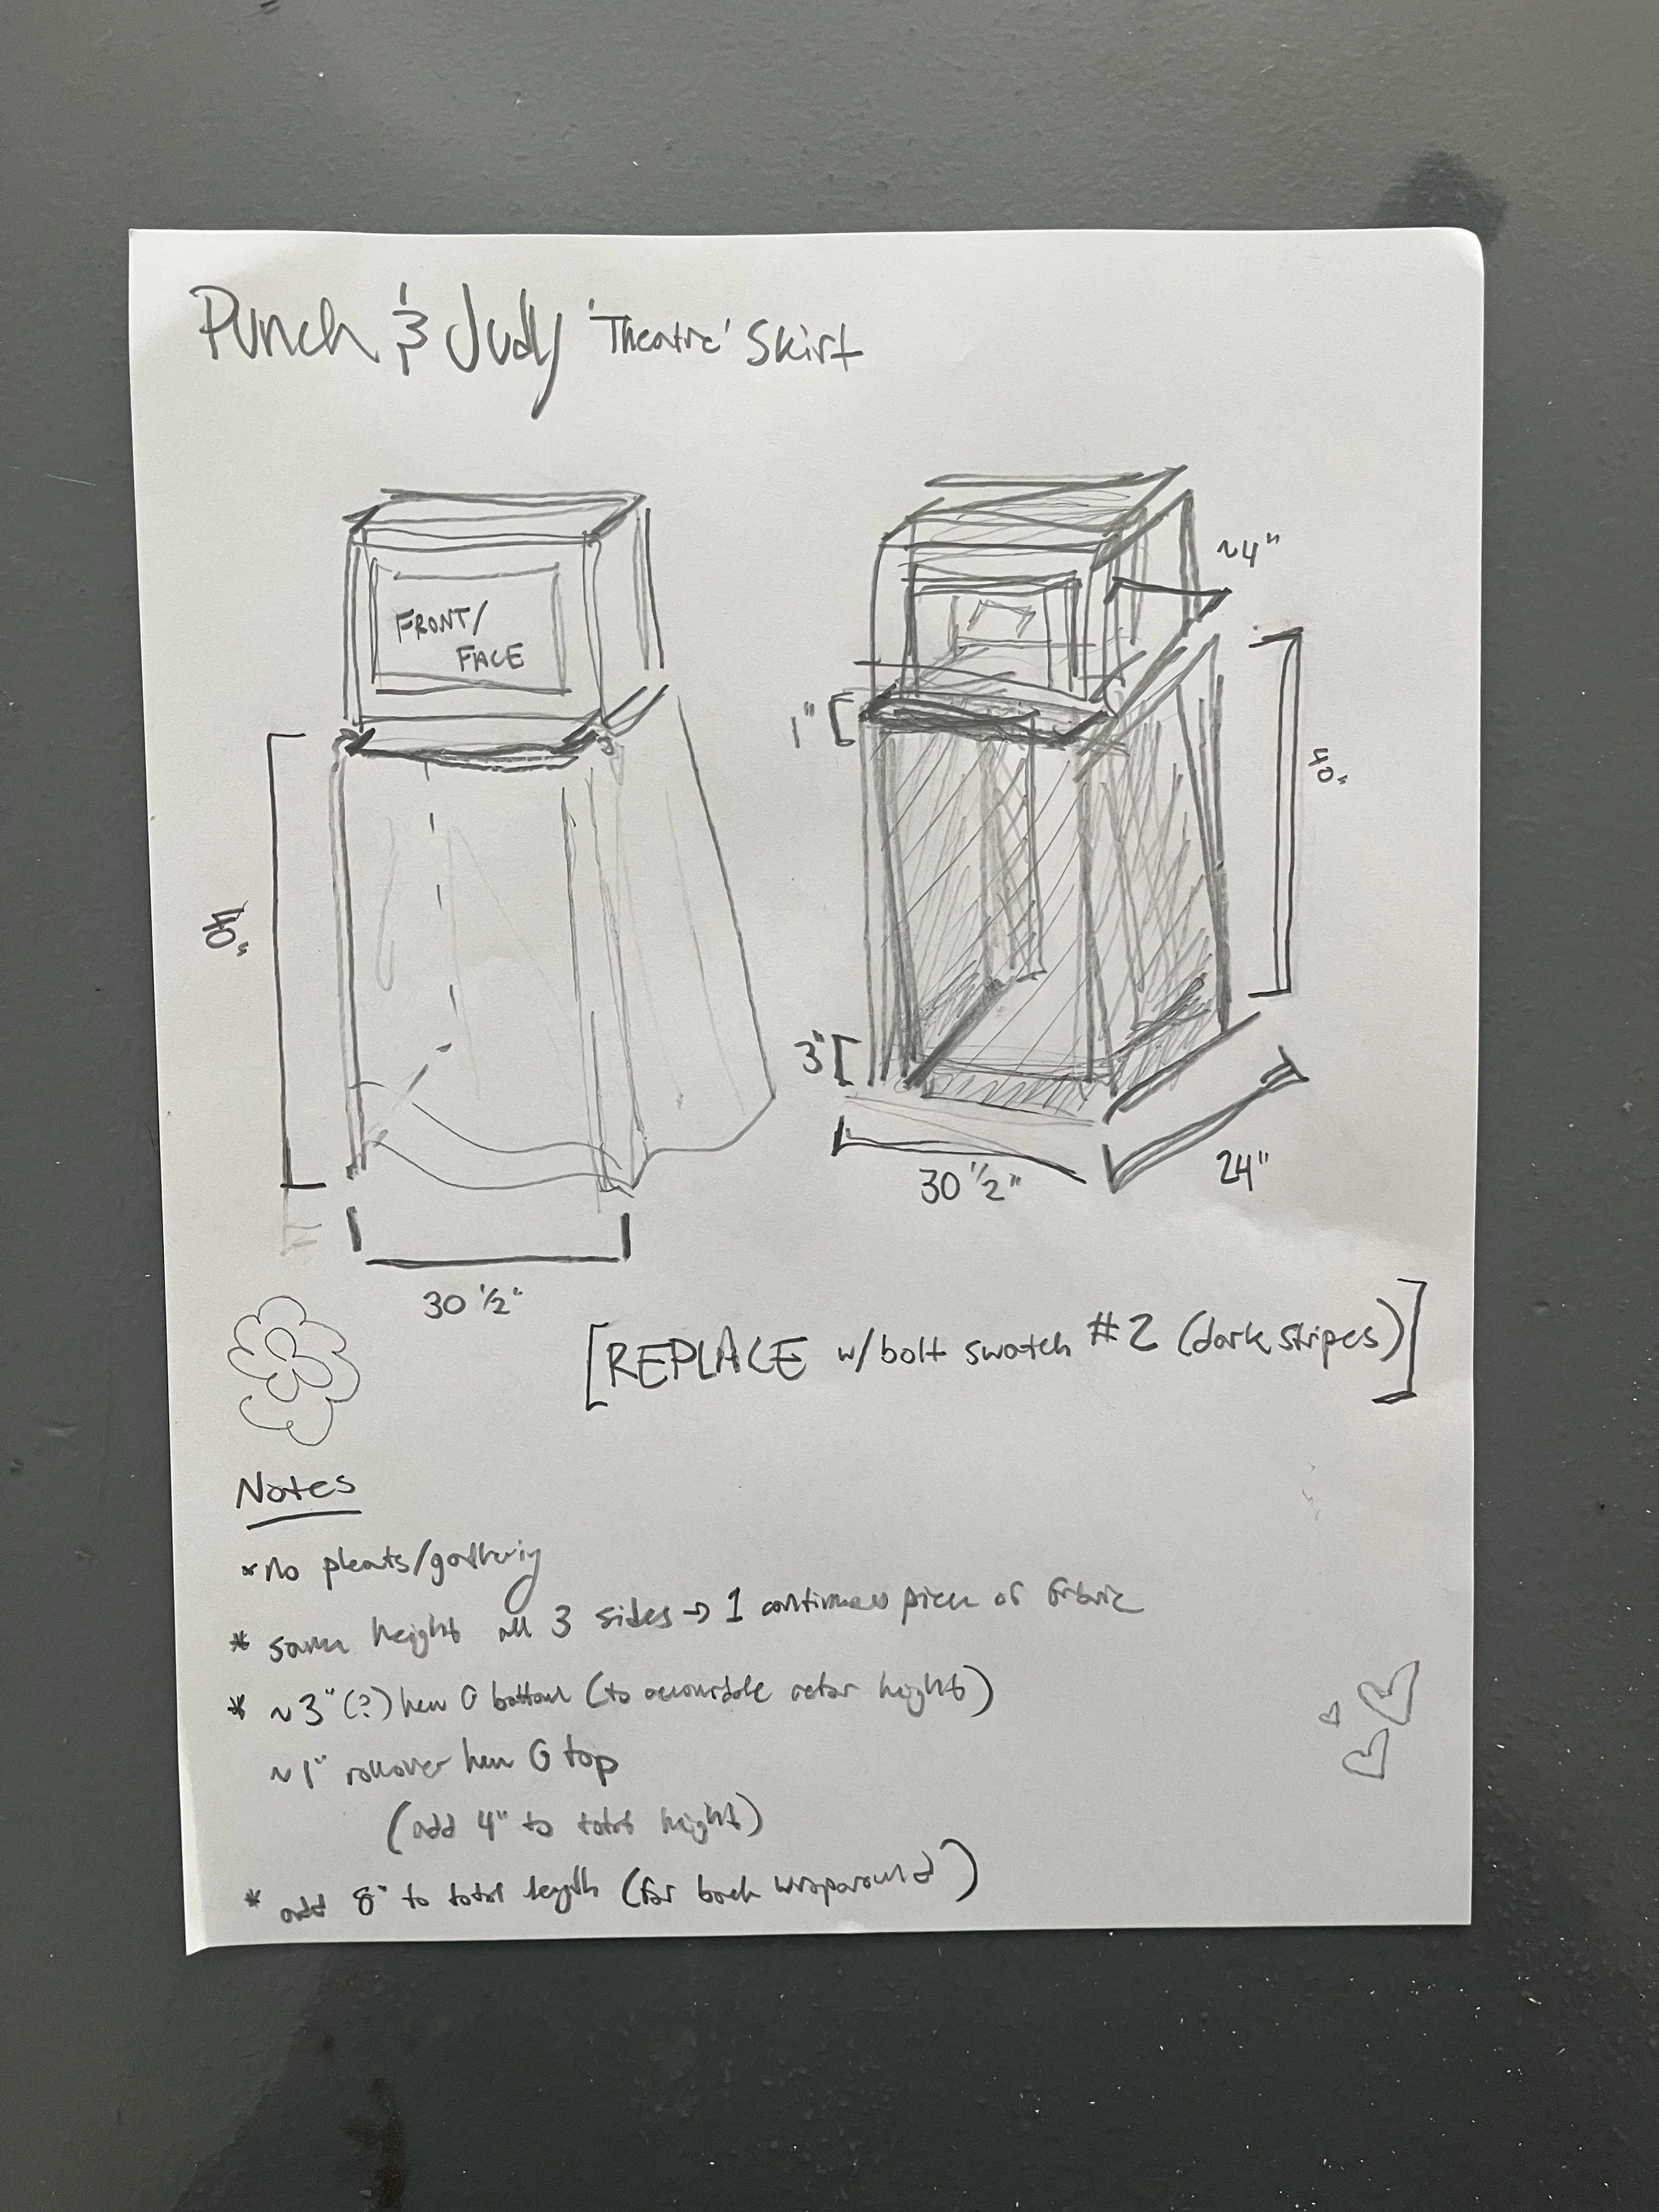 Punch & Judy 'Theatre' Skirt
FRONT/
FACE
~4"
1"
40"
40"
3"
30 1/2"
24"
30 1/2"
[REPLACE w/bolt swatch #2 (dark stripes)]
Notes
* no pleats/gathering
* same height all 3 sides → 1 continuous piece of fabric
* ~3" (?) hem @ bottom (to accomodate actor height)
~1" rollover hem @ top
(add 4" to total height)
* add 8" to total length (for back wraparound)